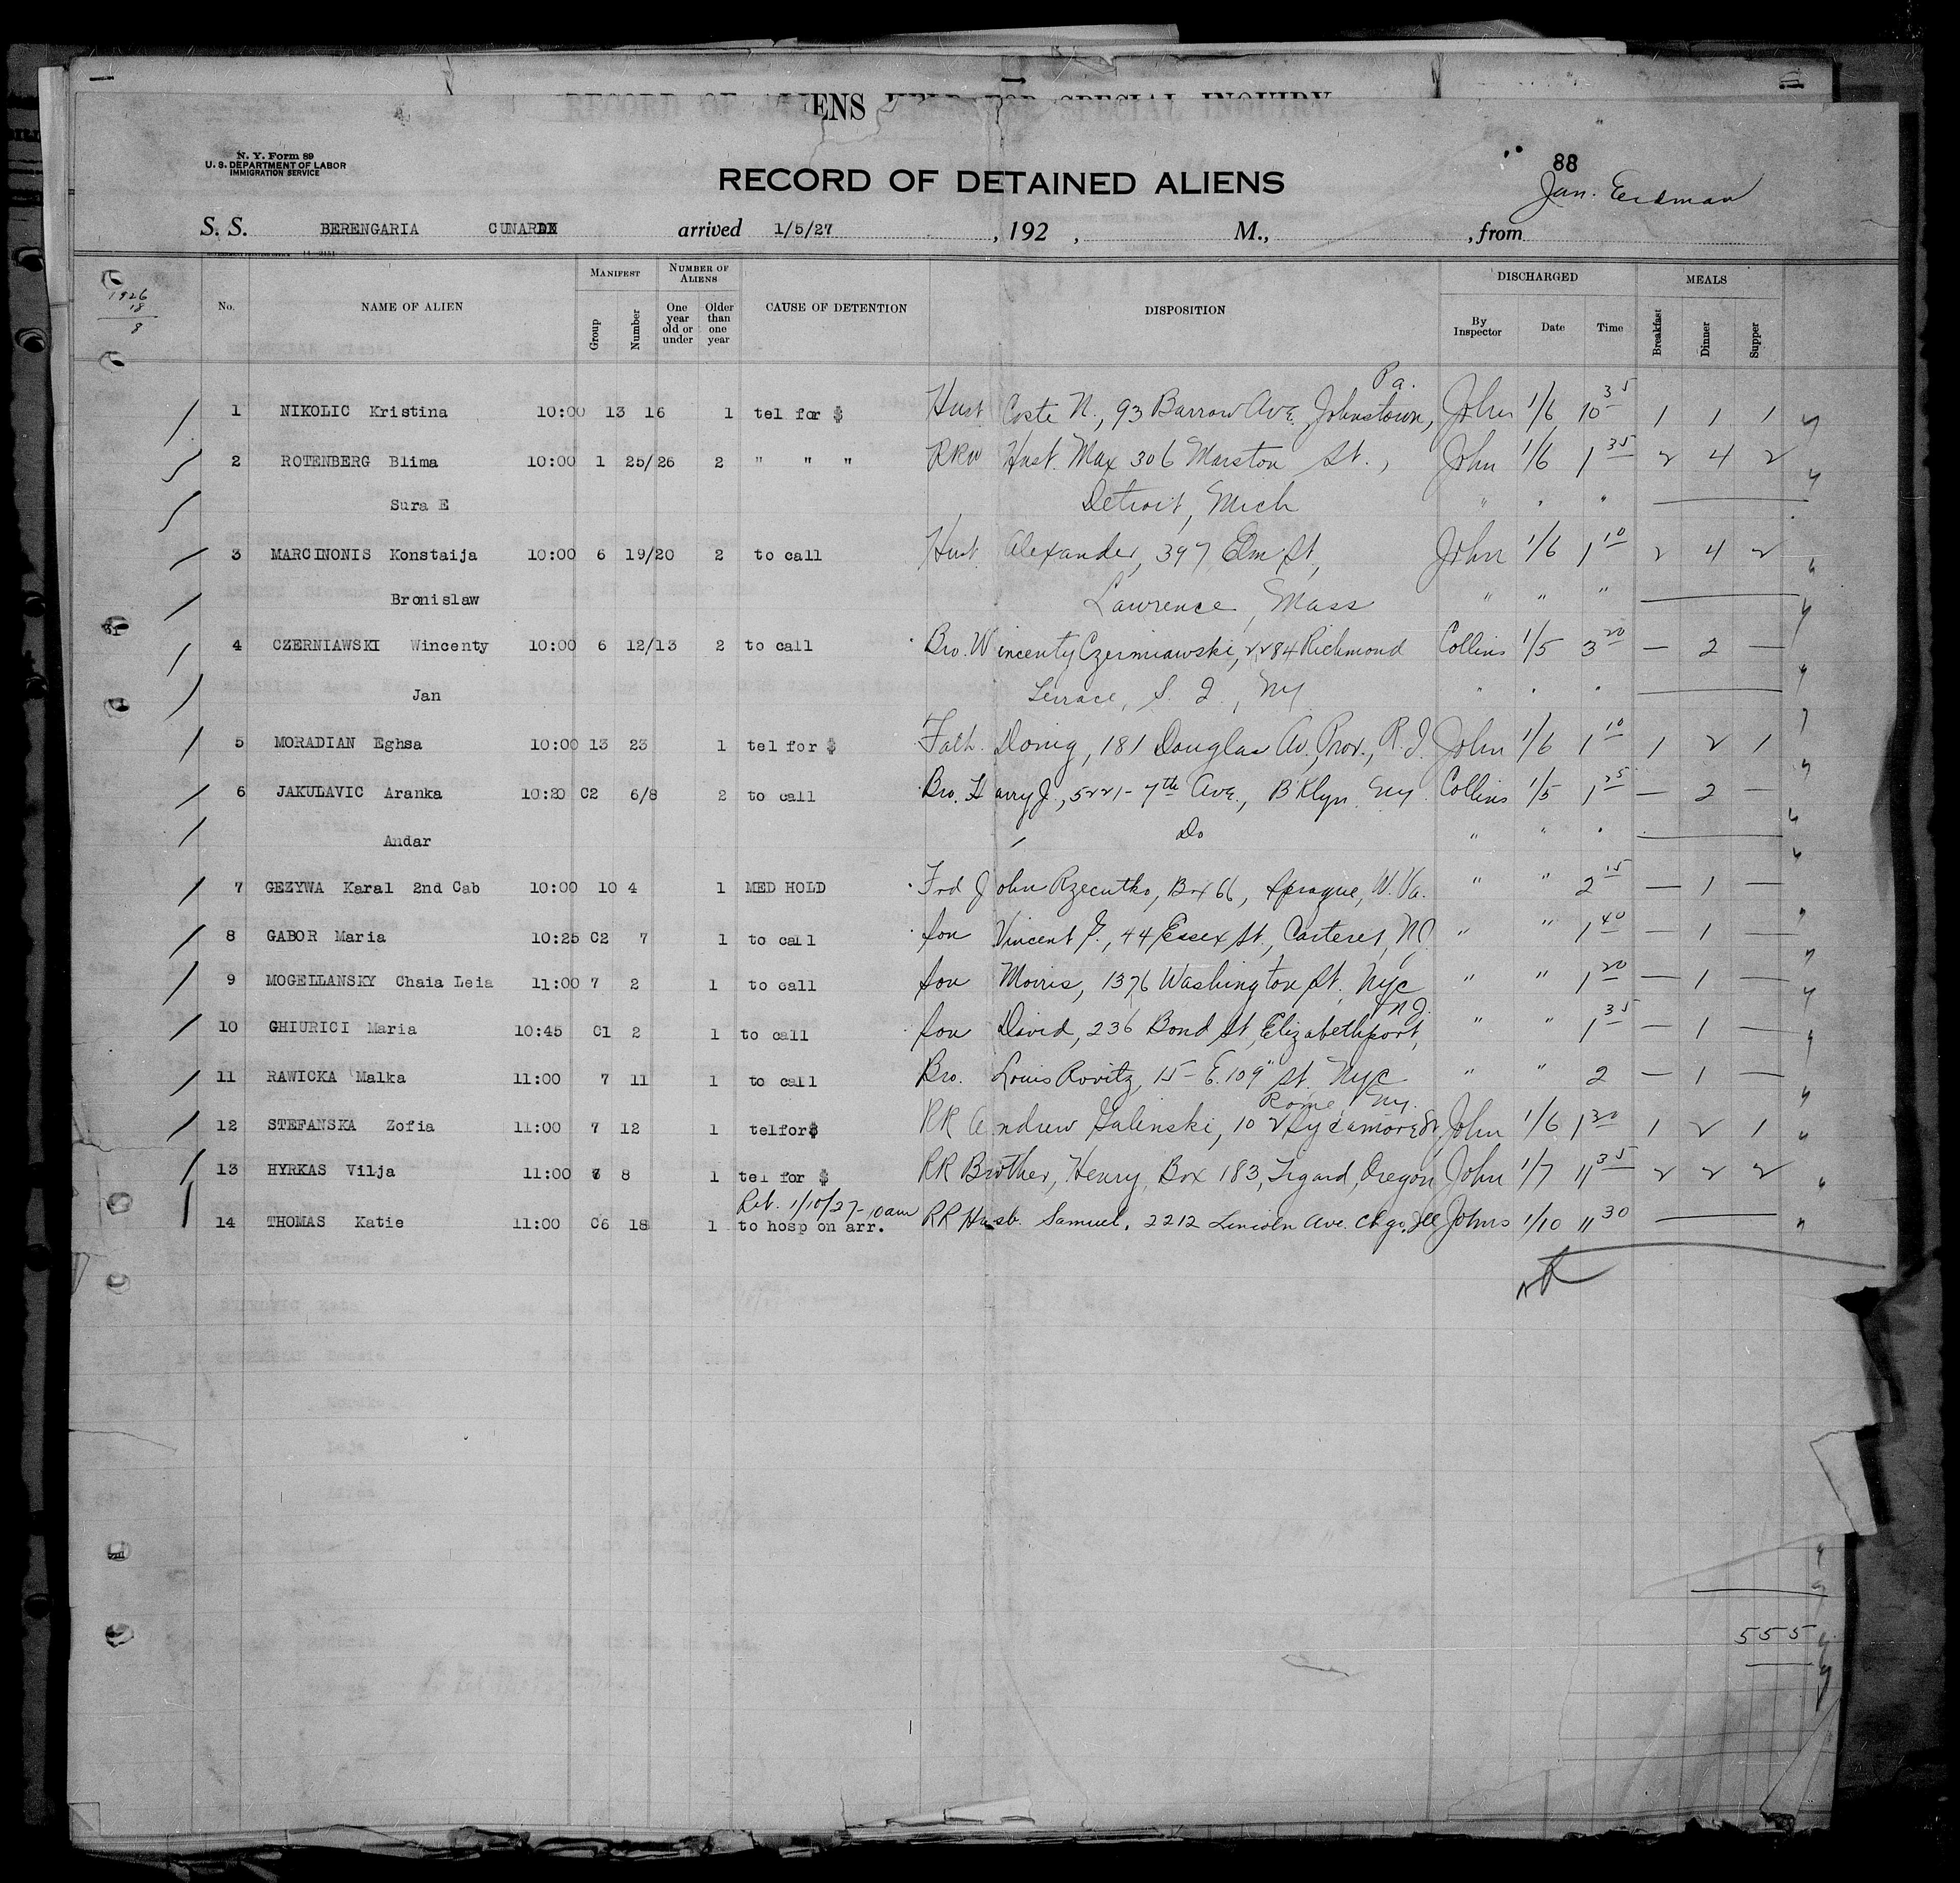 RECORD OF ALIENS HELD FOR SPECIAL INQUIRY
N. Y. Form 89
U. S. DEPARTMENT OF LABOR
IMMIGRATION SERVICE
88
RECORD OF DETAINED ALIENS
Jan. Erdman
S. S. BERENGARIA CUNARD arrived 1/5/27, 192 , M., , from
1926
18
8
No. NAME OF ALIEN MANIFEST Group Number NUMBER OF ALIENS One year old or under Older than one year CAUSE OF DETENTION DISPOSITION DISCHARGED By Inspector Date Time MEALS Breakfast Dinner Supper
Pa.
1 NIKOLIC Kristina 10:00 13 16 1 tel for $ Husb Coste N., 93 Barrow Ave. Johnstown, John 1/6 10 35 1 1 1
2 ROTENBERG Blima 10:00 1 25/26 2 " " " RRW Husb. Max 306 Marston St., John 1/6 1 35 2 4 2
Sura E Detroit, Mich " " "
3 MARCINONIS Konstaija 10:00 6 19/20 2 to call Husb Alexander, 397 Elm St, John 1/6 1 10 2 4 2
Bronislaw Lawrence, Mass " " "
4 CZERNIAWSKI Wincenty 10:00 6 12/13 2 to call Bro. Wincenty Czerniawski, 2284 Richmond Collins 1/5 3 20 — 2 —
Jan Terrace, S. I., NY " " "
5 MORADIAN Eghsa 10:00 13 23 1 tel for $ Fath. Donig, 181 Douglas Av., Prov., R. I. John 1/6 1 10 1 2 1
6 JAKULAVIC Aranka 10:20 C2 6/8 2 to call Bro. Harry J., 5221-7th Ave., BKlyn NY Collins 1/5 1 25 — 2 —
Andar Do " " "
7 GEZYWA Karal 2nd Cab 10:00 10 4 1 MED HOLD Frd John Rzecutko, Box 66, Sprague, W. Va. " " 2 15 — 1 —
8 GABOR Maria 10:25 C2 7 1 to call Son Vincent G., 44 Essex St., Carteret, NJ. " " 1 40 — 1 —
9 MOGELLANSKY Chaia Leia 11:00 7 2 1 to call Son Morris, 1376 Washington St. NYC " " 1 20 — 1 —
N.J.
10 GHIURICI Maria 10:45 C1 2 1 to call Son David, 236 Bond St, Elizabethport, " " 1 35 — 1 —
11 RAWICKA Malka 11:00 7 11 1 to call Bro. Louis Rovitz, 15 - E. 109" St. NYC " " 2 — 1 —
Rome, NY.
12 STEFANSKA Zofia 11:00 7 12 1 telfor$ RR Andrew Galenski, 102 Sycamore St, John 1/6 1 30 1 2 1
13 HYRKAS Vilja 11:00 8 1 tel for $ RR Brother, Henry, Box 183, Tigard, Oregon John 1/7 11 35 2 2 2
Ret. 1/10/27-10am
14 THOMAS Katie 11:00 C6 18 1 to hosp on arr. RR Husb. Samuel, 2212 Lincoln Ave. Chgo, Ill Johns 1/10 11 30
555